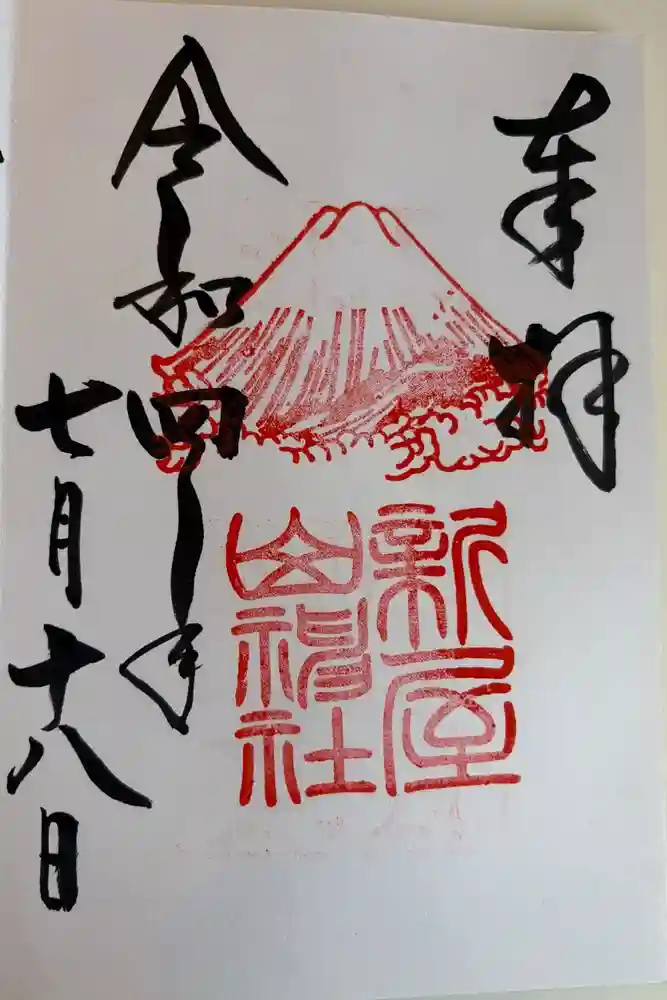 奉拝
新屋
山神社
令和四年
七月十八日